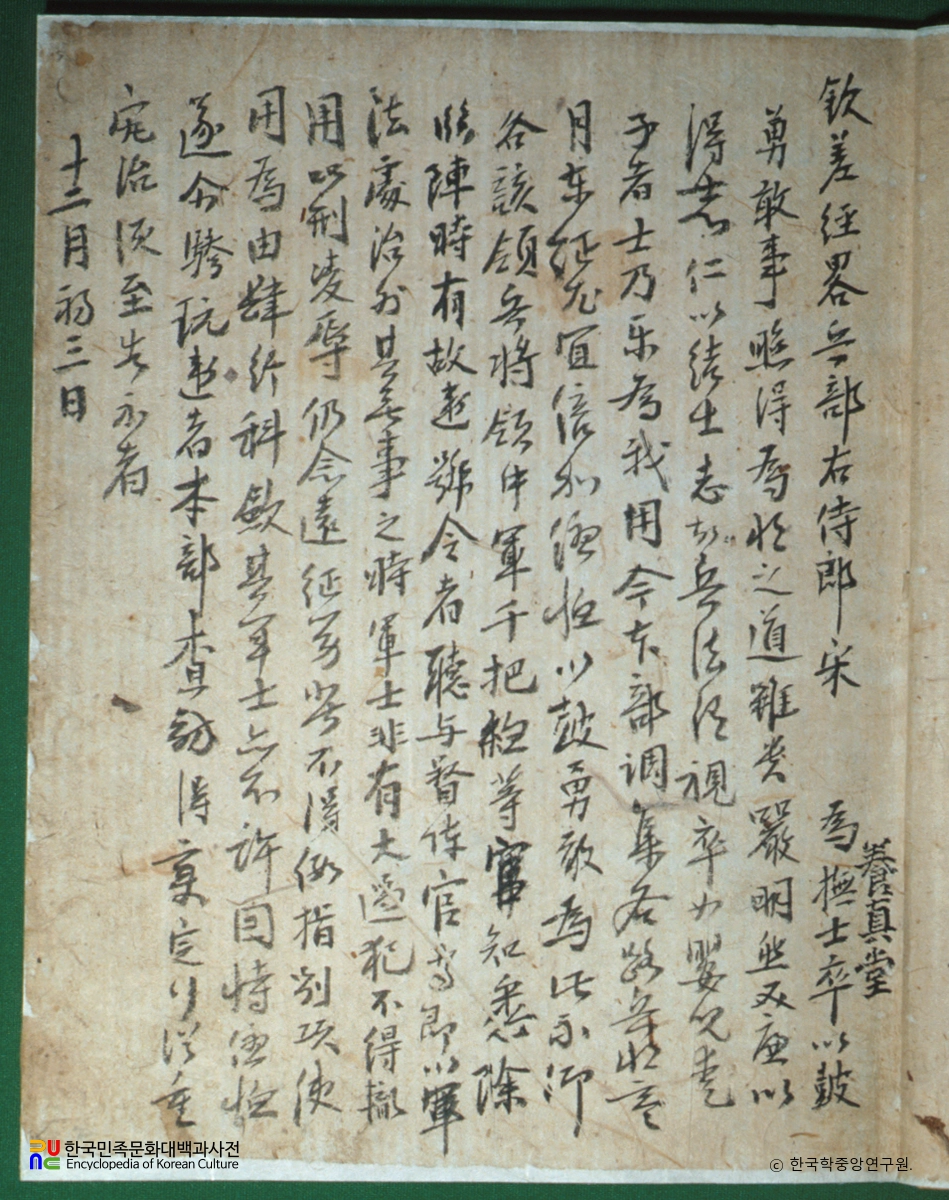 欽差經略兵部右侍郎宋 爲撫士卒以鼓
養真堂
勇敢事照得爲將之道雖貴嚴明然又廉以
得衆仁以結士志故兵法謂視卒如嬰兒
子者士乃樂爲我用今本部調集各路
月東征尤宜倍加優恤以鼓勇敢爲此示仰
各該領兵將領中軍千把總等官知悉除
臨陣時有故違號令者聽與督陣官等即以軍
法處治外其無事之時軍士非有大過犯不得輒
用以刑凌辱仍念遠征勞苦不得假指別項使
用爲由肆行科斂其軍士亦不許因恃優恤
遂令驕玩違者本部查訪得實定行從重
究治須至告示者
十二月初三日
한국민족문화대백과사전
Encyclopedia of Korean Culture
ⓒ 한국학중앙연구원.